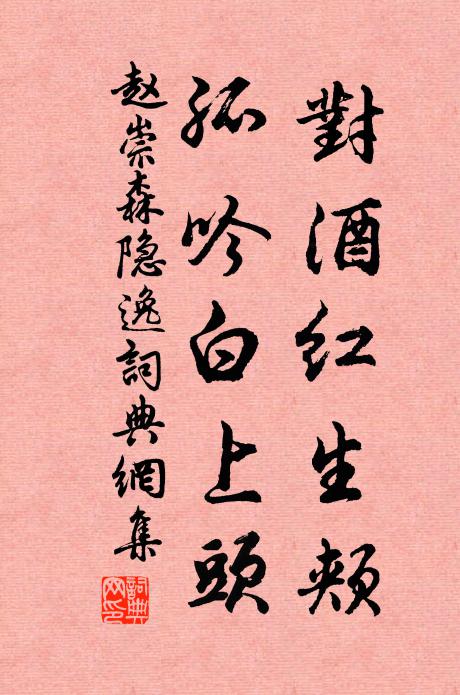 對酒紅生頰
孤吟白上頭
赵崇森隐逸詞典網集
詞典網印